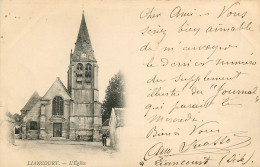 Cher Ami - Vous
seriez bien aimable
de m'envoyer
le dernier numéro
du Supplément
illustré du "Journal
qui paraît le
Mercredi.
Bien à Vous
à Liancourt (Oise)
LIANCOURT. - L'Église